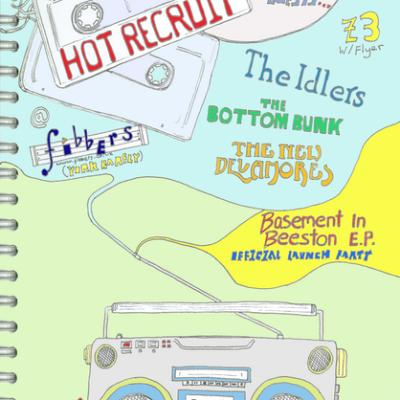 HOT RECRUIT
£3
W/Flyer
The Idlers
THE
BOTTOM BUNK
@
fibbers
(YORK BARFLY)
THE NEW
DEVAMORES
Basement In
Beeston E.P.
OFFICIAL LAUNCH PARTY